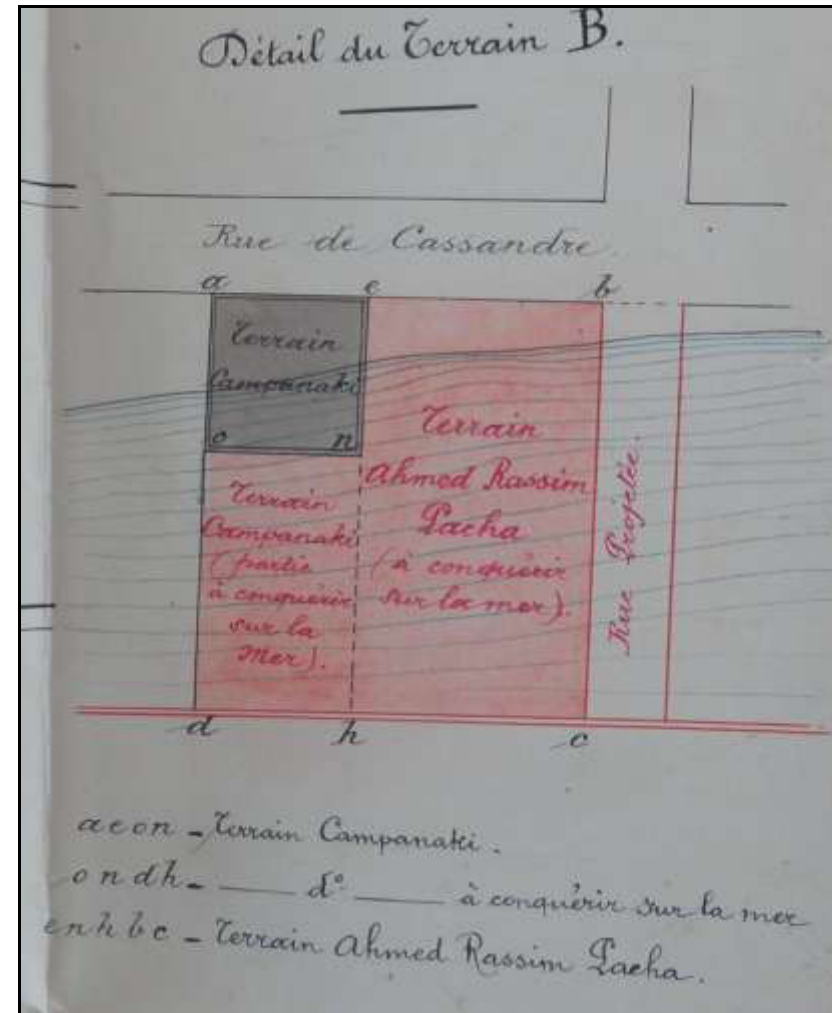 Détail du Terrain B.
Rue de Cassandre.
a e b
Terrain
Campanaki
o n
Terrain
Campanaki
(partie
à conquérir
sur la
Mer).
Terrain
Ahmed Rassim
Pacha
(à conquérir
sur la mer).
Rue Projetée.
d h c
aeon - Terrain Campanaki.
ondh - d° à conquérir sur la mer
enhbc - Terrain Ahmed Rassim Pacha.